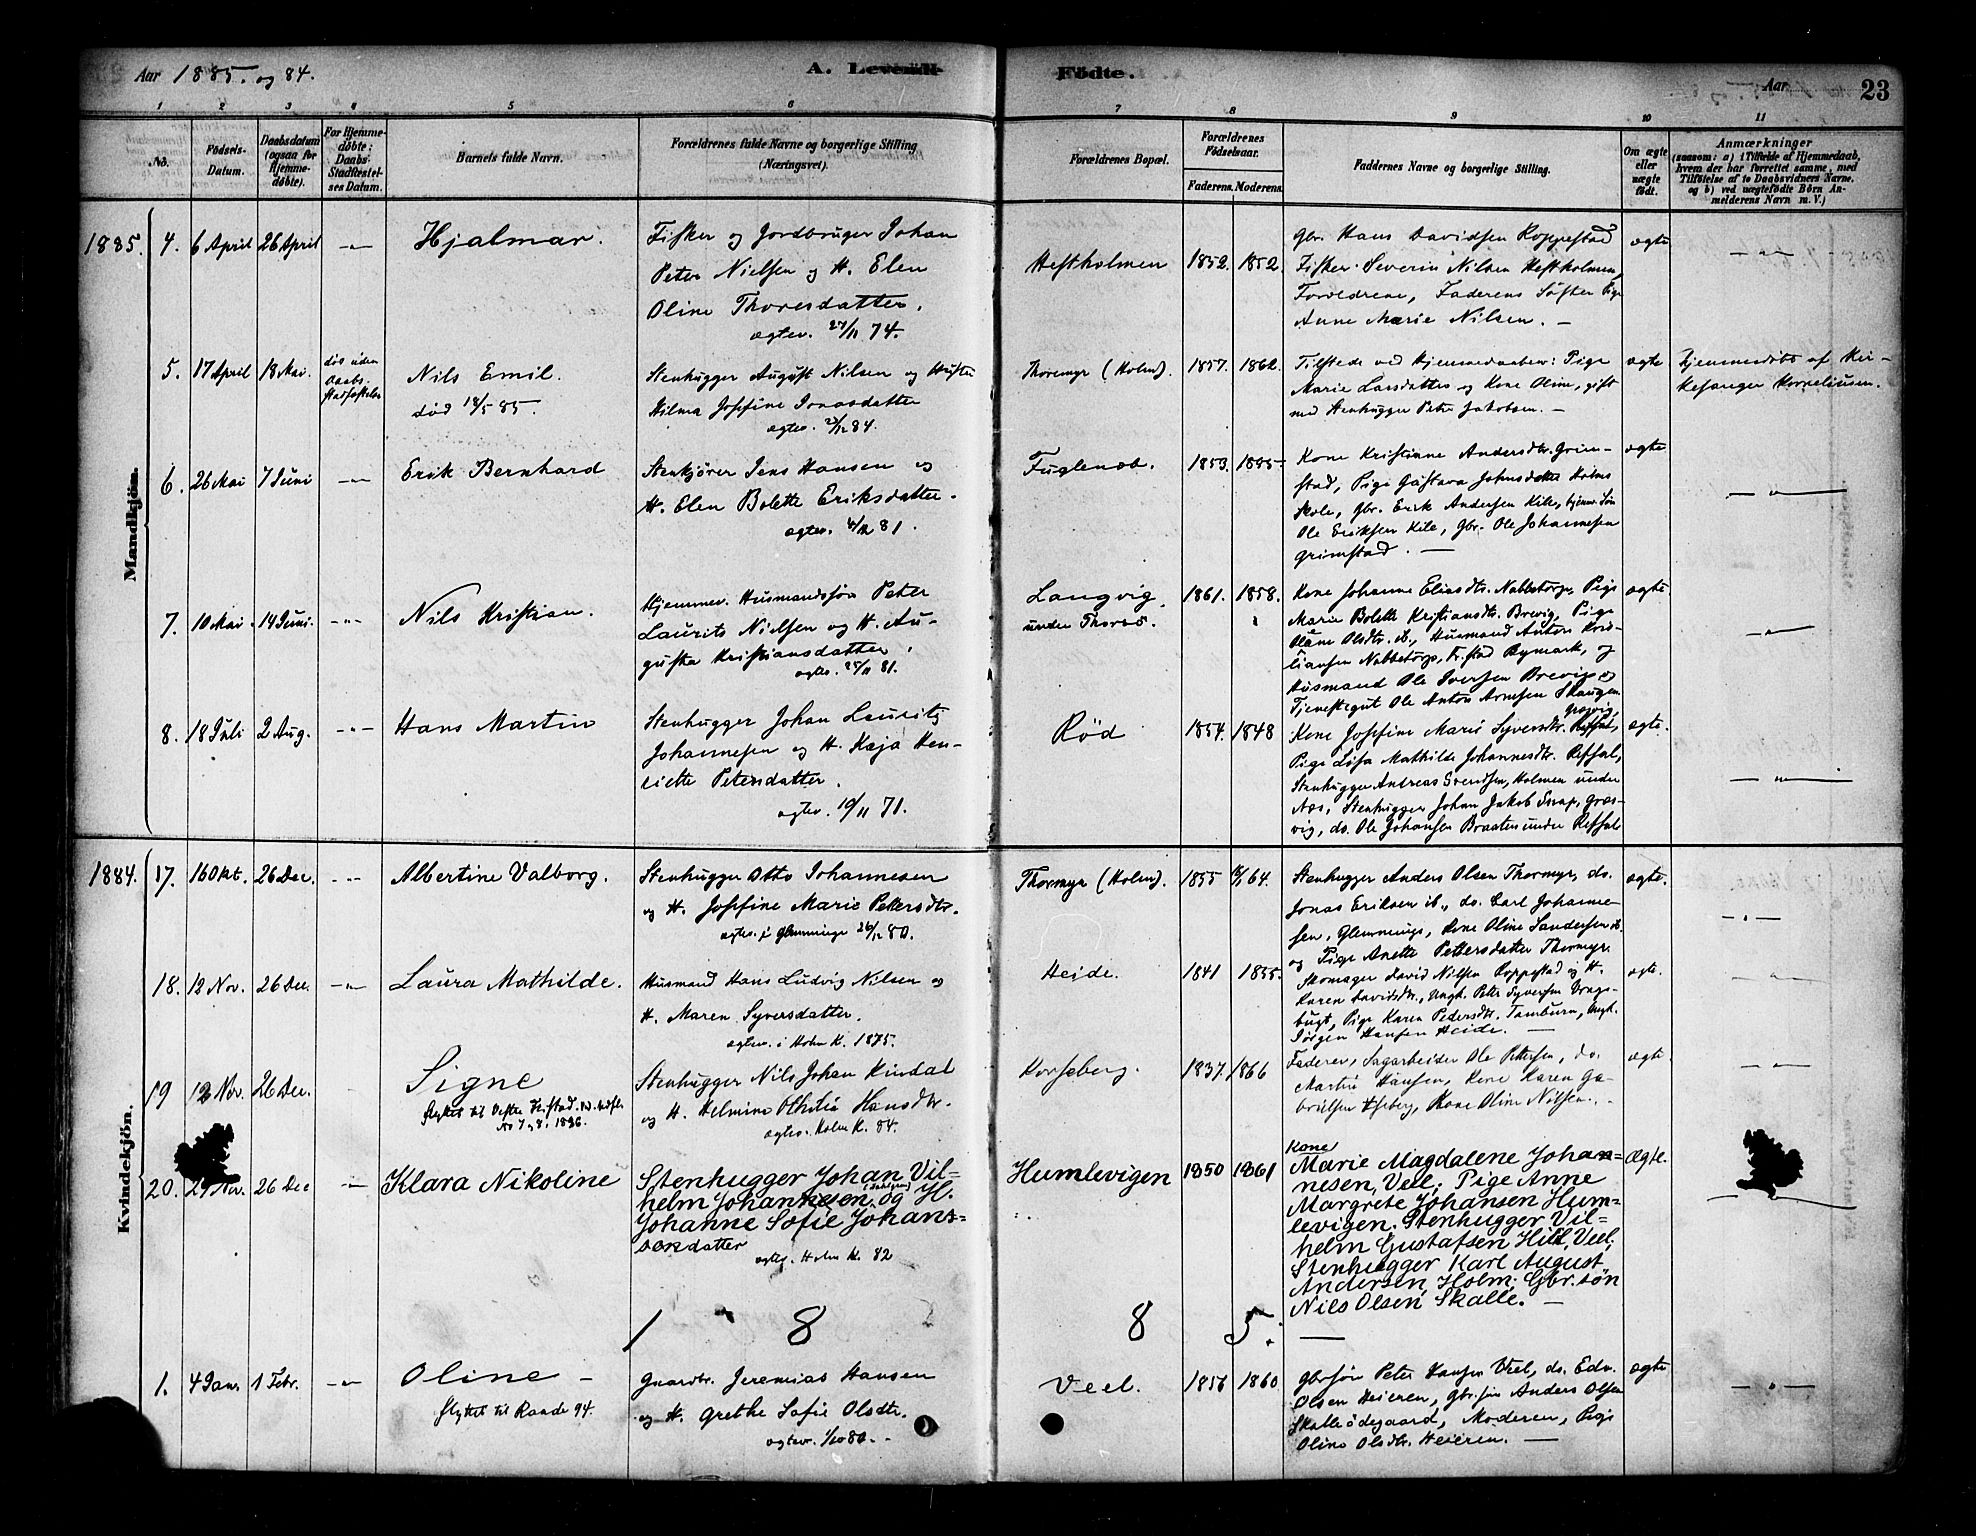 Aar 1885. og 84.
A. Levende Fødte.
Aar
23
1 2 3 4 5 6 7 8 9 10 11
No.
Födsels-Datum.
Daabsdatum (ogsaa for Hjemme-døbte).
For Hjemme-døbte: Daabs-Stadfæstel-ses Datum.
Barnets fulde Navn.
Forældrenes fulde Navne og borgerlige Stilling (Næringsvei).
Forældrenes Bopæl.
Forældrenes Födselsaar.
Faderens. Moderens.
Faddernes Navne og borgerlige Stilling.
Om ægte eller uægte født.
Anmærkninger
(saasom: a) i Tilfælde af Hjemmedaab, hvem der har forrettet samme, med Tilföielse af to Daabsvidners Navne, og b) ved uægtefödte Börn An-melderens Navn m. V.)
Mandkjön.
1885.
4. 6 April 26 April -"- Hjalmar.
Fisker og Jordbruger Johan
Peter Nielsen og H. Elen
Oline Thoresdatter.
ægtev. 74.
Heftholmen 1852. 1852.
Gbr. Hans Davidsen Roppestad
Fisker Severin Nilsen Heftholmen,
Forældrene, Faderens Søster Pige
Anne Marie Nilsen. —
ægte -"-
5. 17 April 18 Mai. død uden Daabs-stadfæstelse
Nils Emil.
død 18/5 85.
Stenhugger August Nilsen og Hustru
Hilma Josefine Jonasdatter
ægtev. 84.
Thormyr (Holm). 1857. 1862.
Tilstede ved Hjemmedaaben: Pige
Marie Larsdatter og Kone Oline, gift
med Stenhugger Peter Jakobsen. —
ægte
Hjemmedöbt af Kirkesanger Korneliussen.
6. 26 Mai 7 Juni -"- Erik Bernhard
Stenkjører Jens Hansen og
H. Elen Bolette Eriksdatter.
ægtev. 81.
Fuglenæb. 1853. 1855.
Kone Kristianne Andersdtr. Grim-
stad, Pige Gustava Johnsdatter Holms
Skole, Gbr. Erik Andersen Kile, hjemv. Søn
Ole Eriksen Kile, Gbr. Ole Johannesen
Grimstad. —
ægte -"-
7. 10 Mai. 14 Juni. -"- Nils Kristian.
Hjemmev. Husmandssøn Peter
Laurits Nielsen og H. Au-
gusta Kristiansdatter.
ægtev. 81.
Langvig,
under Thorsö.
1861. 1858.
Kone Johanne Eliasdtr. Nabbetorp, Pige
Marie Bolette Kristiansdtr. Brevig, Pige
Oline Olsdtr. ib., Husmand Anton Kris-
tiansen Nabbetorp, Fr.stad Bymark, og
Husmand Ole Iversen Brevig og
Tjenestegut Ole Anton Arnesen Skaugen
ægte. -"-
8. 18 Juli 2 Aug. -"- Hans Martin
Stenhugger Johan Lauritz
Johannesen og H. Kaja Hen-
riette Petersdatter.
ægtev. 10/11 71.
Rød 1854. 1848
Græsvig,
Kone Josefine Marie Syversdtr.
Pige Lovisa Mathilde Johannesdtr. Refsal,
Stenhugger Andreas Svendsen, Holmen under
Næs, Stenhugger Johan Jakob Græs-
vig, do. Ole Johansen Braaten under Refsal
ægte. -"-
Kvindekjön.
1884.
17. 16 Okt. 26 Dec. -"- Albertine Valborg.
Stenhugger Otto Johannesen
og H. Josefine Marie Pettersdtr.
ægtev. i Glemminge 26/12 80.
Thormyr (Holm). 1855 64.
Stenhugger Anders Olsen Thormyr, do.
Jonas Eriksen ib., do. Carl Johanne-
sen, Glemminge, Kone Oline Sandersen ib.
og Pige Anette Pettersdatter Thormyr.
ægte. -"-
18. 12 Nov. 26 Dec. -"- Laura Mathilde.
Husmand Hans Ludvig Nilsen og
H. Maren Syversdatter.
ægtev. i Holm K. 1875.
Heide. 1841 1855.
Skomager David Nilsen Roppestad og H.
Karen Davidsdtr., Ungk. Peter Syversen
bugt, Pige Karen Pedersdtr. Tamburn, Ungk.
Jörgen Hansen Heide. —
ægte. -"-
19 12 Nov. 26 Dec. Signe
flyttet til Vestre Fr.stad.
No 7, 1896.
Stenhugger Nils Johan Kindal
og H. Helmine Othilia Hansdtr.
ægtev. Holm K. 84.
Korseberg. 1837. 1866
Faderen, Sagarbeider Ole Pettersen, do.
Martin Hansen, Kone Karen Ga-
brielsen, Kone Oline Nilsen. -
ægte. -"-
20. Nov. 26 Dec -"- Klara Nikoline
Stenhugger Johan Vil-
helm Johannesen og H.
Johanne Sofie Johans-
datter
ægtev. Holm K. 82
Humlevigen 1850 1861
Kone
Marie Magdalene Johan-
nesen, Vele; Pige Anne
Margrete Johansen Hum-
levigen. Stenhugger Vil-
helm Gustafsen Hild, Veel;
Stenhugger Karl August
Andersen, Holm; Gbr.søn
Nils Olsen Skalle. —
Ægte.
1 8 8 5.
1. 4 Jan. 1 Febr. -"- Oline -
flyttet til Raade 94.
Gaardbr. Jeremias Hansen
og H. Grethe Sofie Olsdtr.
ægtev. 1/10 80.
Veel. 1856 1860
Gbrsøn Peter Hansen Veel, do. Edv.
Olsen Heieren, Gbr.søn Anders Olsen
Skalleödegaard, Moderen, Pige
Oline Olsdtr. Heieren. —
ægte -"-